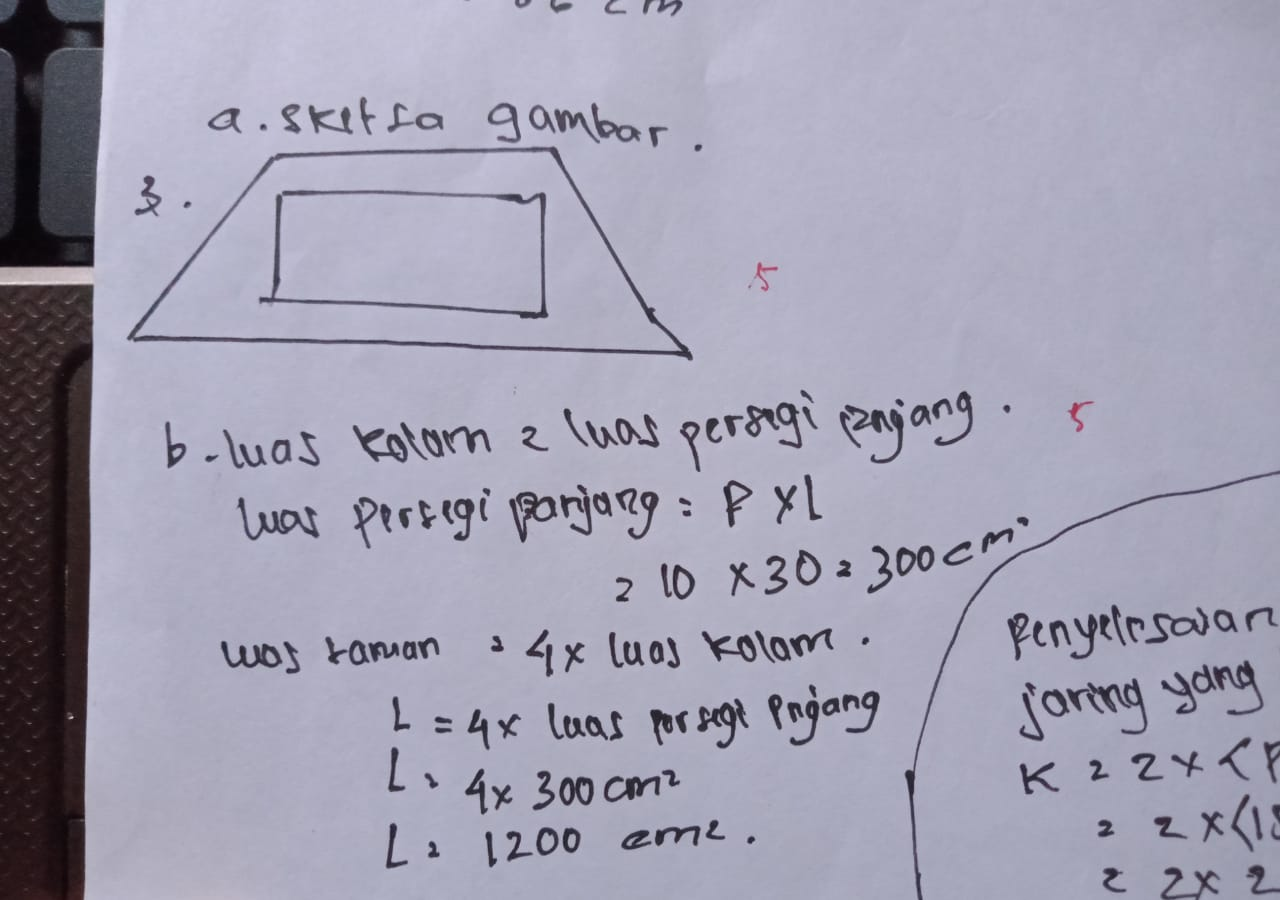 cm
a. sketsa gambar.
3.
5
b. luas kolam = luas persegi panjang. 5
luas persegi panjang = P x l
= 10 x 30 = 300 cm
luas taman = 4x luas kolam.
L = 4x luas persegi Pnjang
L = 4x 300 cm²
L = 1200 cm2.
Penyelesaian
jaring yang
K = 2 x (P
= 2 x (18
= 2x 2